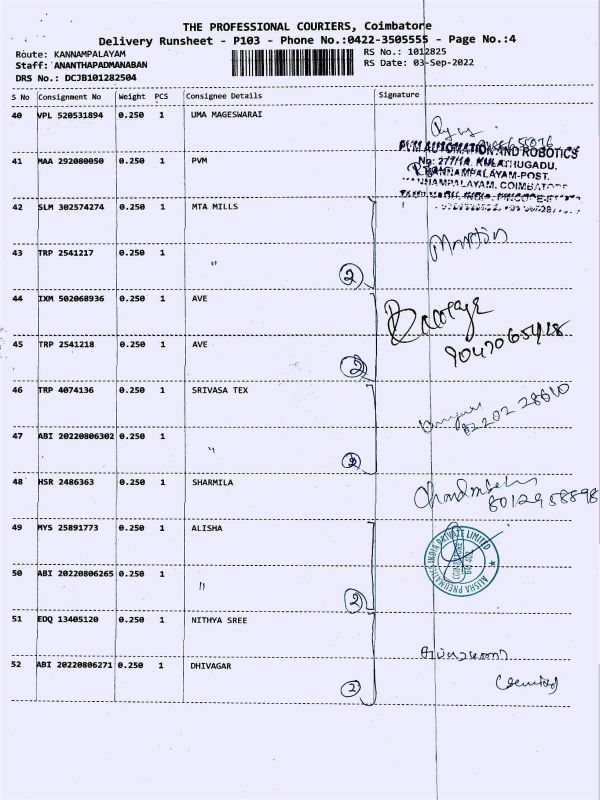 THE PROFESSIONAL COURIERS, Coimbatore
Delivery Runsheet - P103 - Phone No.:0422-3505555 - Page No.:4
Route: KANNAMPALAYAM RS No.: 1012825
Staff: ANANTHAPADMANABAN RS Date: 03-Sep-2022
DRS No.: DCJB101282504
S No Consignment No Weight PCS Consignee Details Signature
40 VPL 520531894 0.250 1 UMA MAGESWARAI
41 MAA 292080050 0.250 1 PVM
PVM AUTOMATION AND ROBOTICS
No: 277/1A, KULATHUGADU,
KANNAMPALAYAM-POST,
KANNAMPALAYAM, COIMBATORE
42 SLM 302574274 0.250 1 MTA MILLS
43 TRP 2541217 0.250 1 "
2
44 IXM 502068936 0.250 1 AVE
9047065418
45 TRP 2541218 0.250 1 AVE
2
46 TRP 4074136 0.250 1 SRIVASA TEX
82202 28610
47 ABI 20220806302 0.250 1 "
2
48 HSR 2486363 0.250 1 SHARMILA
8012958898
49 MYS 25891773 0.250 1 ALISHA
ALISHA PNEUMATIC INDIA PRIVATE LIMITED
50 ABI 20220806265 0.250 1 "
2
51 EDQ 13405120 0.250 1 NITHYA SREE
52 ABI 20220806271 0.250 1 DHIVAGAR
2